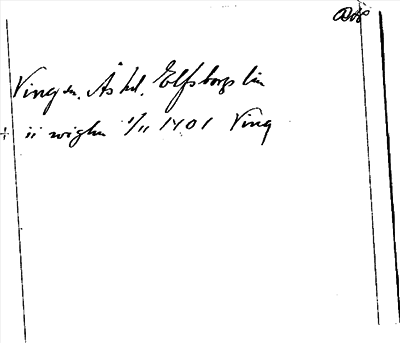 Ving sn. Ås hd. Elfsborgs län
ii wighn 1/11 1401 Ving